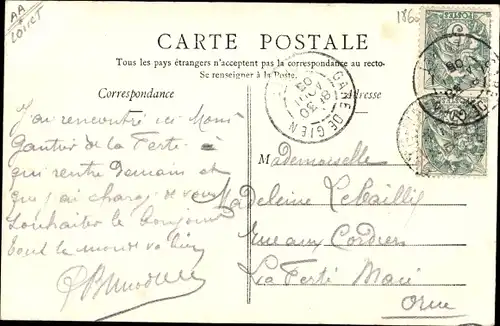 AA
LOIRET
186
CARTE POSTALE
Tous les pays étrangers n'acceptent pas la correspondance au recto-
Se renseigner à la Poste.
Correspondance
Adresse
GARE DE GIEN
8 30
AOUT
POSTES
J'ai rencontré ici Mons
Gautier de la Ferté
qui rentre demain et
que j'ai chargé de vous
souhaiter le bonjour
tout le monde va bien
Mademoiselle
Madeleine Lebailly
Rue aux Cordiers
La Ferté Macé
Orne